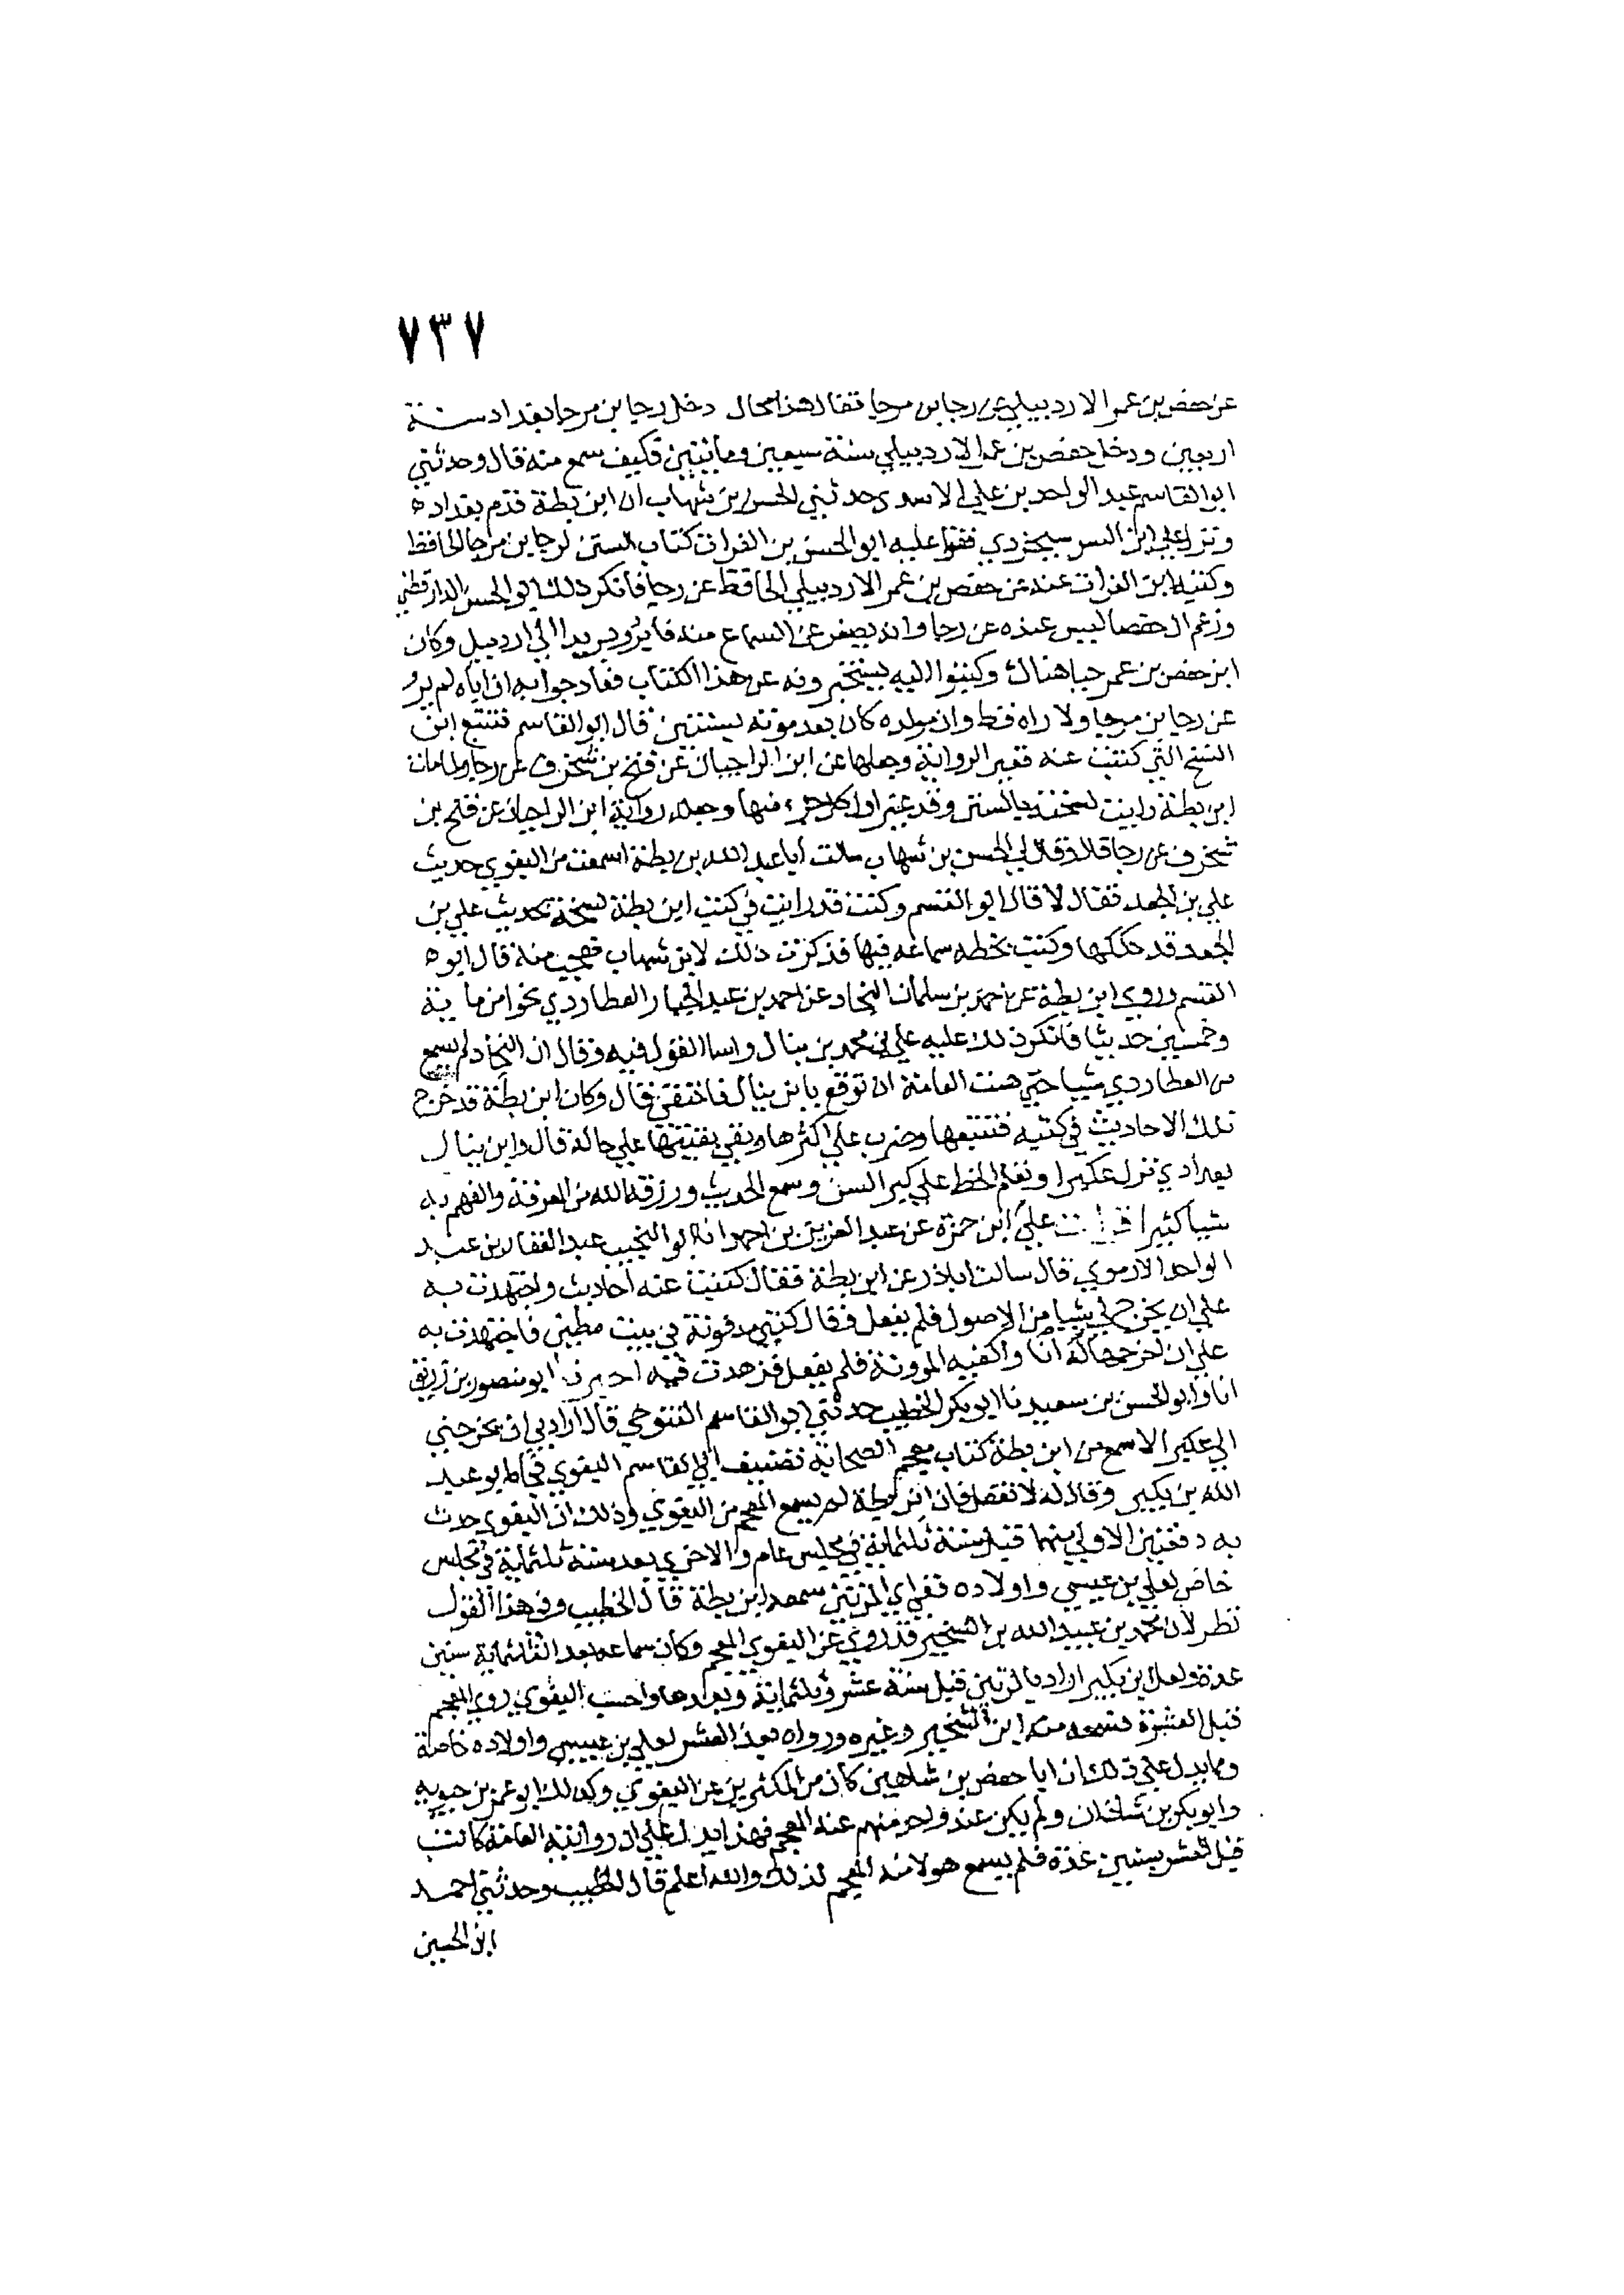 ٧٣٧
عن حفص بن عمر الاردبيلي عن رجا بن مرجا فقال هذا محال دخل رجا بن مرجا بغداد سنة
اربعين ودخل حفص بن عمر الاردبيلي سنة سبعين ومائتين فكيف سمع منه قال وحدثني
ابو القاسم عبد الواحد بن علي الاسدي حدثني الحسن بن شهاب ان ابن بطة قدم بغداد ه
ونزل علي ابن السوسنجردي فقرا عليه ابو الحسن بن الفرات كتاب السنن لرجا بن مرجا الحافظ
وكتبه ابن الفرات عنه عن حفص بن عمر الاردبيلي الحافظ عن رجا فانكر ذلك ابو الحسن الدارقطني
وزعم ان حفصا ليس عنده عن رجا وانه يصغر عن السماع منه فابردوا بريدا الي اردبيل وكان
ابن حفص بن عمر حيا هناك وكتبوا اليه يستخبرونه عن هذا الكتاب فعاد جوابه ان اباه لم يرو
عن رجا بن مرجا ولا راه قط وان مولده كان بعد موته بسنتين قال ابو القاسم فتتبع ابن
النسخ التي كتبت عنه فغير الرواية وجعلها عن ابن الراجيان عن فتح بن شخرف عن رجا ولما مات
ابن بطة رايت نسخته بالسنن وقد غير اول كل جزء منها وجعله رواية ابن الراجيان عن فتح بن
شخرف عن رجا قال وقال لي الحسن بن شهاب سالت ابا عبد الله بن بطة اسمعت من البغوي حديث
علي بن الجعد فقال لا قال ابو القسم وكنت قد رايت في كتب ابن بطة نسخة بحديث علي بن
الجعد قد حككها وكتب بخطه سماعه فيها فذكرت ذلك لابن شهاب فعجب منه قال ابو ه
القسم وروي ابن بطة عن احمد بن سلمان النجاد عن احمد بن عبد الجبار العطاردي نحوا من ماية
وخمسين حديثا فانكر ذلك عليه علي بن محمد بن ينال واسا القول فيه وقال ان النجاد لم يسمع
من العطاردي شيا حتي همت العامة ان توقع بابن ينال فاختفي قال وكان ابن بطة قد خرج
تلك الاحاديث في كتبه فتتبعها وضرب علي اكثرها وبقي بقيتها علي حاله قال وابن ينال
بغدادي نزل عكبرا وتعلم الخط علي كبر السن وسمع الحديث ورزقه الله من المعرفة والفهم به
شيا كثيرا قرات علي ابن حمزة عن عبد العزيز بن احمد انا ابو النجيب عبد الغفار بن عبد
الواحد الارموي قال سالت اباذر عن ابن بطة فقال كتبت عنه احاديث واجتهدت به
علي ان يخرج لي شيا من الاصول فلم يفعل فقال كتبي مدفونة في بيت مطين فاجتهدت به
علي ان اخرجها له انا واكفيه المؤونة فلم يفعل فزهدت فيه اخبرنا ابو منصور بن زريق
انا وابو الحسن بن سعيد نا ابو بكر الخطيب حدثني ابو القاسم التنوخي قال اراد ابي ان يخرجني
الي عكبرا لاسمع من ابن بطة كتاب معجم الصحابة تصنيف ابي القاسم البغوي فجاه ابو عبد
الله بن بكير وقال له لا تفعل فان ابن بطة لم يسمع المعجم من البغوي وذلك ان البغوي حدث
به دفعتين الاولي منهما قبل سنة ثلثماية في مجلس عام والاخري بعد سنة ثلثماية في مجلس
خاص لعلي بن عيسي واولاده ففي اي المرتين سمعه ابن بطة قال الخطيب وفي هذا القول
نظر لان محمد بن عبيد الله بن الشخير قد روي عن البغوي المعجم وكان سماعه بعد الثلثماية سنين
عدة ولعل ابن بكير اراد بالمرتين قبل سنة عشر وثلثماية وبعدها واحسب البغوي روي المعجم
قبل العشرة فسمعه منه ابن الشخير وغيره ورواه بعد العشر لعلي بن عيسي واولاده خاصة
ومما يدل علي ذلك ان ابا حفص بن شاهين كان من المكثرين عن البغوي وكذلك ابو عمر بن حيويه
وابو بكر بن شاذان ولم يكن عند واحد منهم عنه المعجم فهذا يدل علي ان روايته العامة كانت
قبل العشر بسنين عدة فلم يسمع هولا منه المعجم لذلك والله اعلم قال الخطيب وحدثني احمد
ابن الحسين